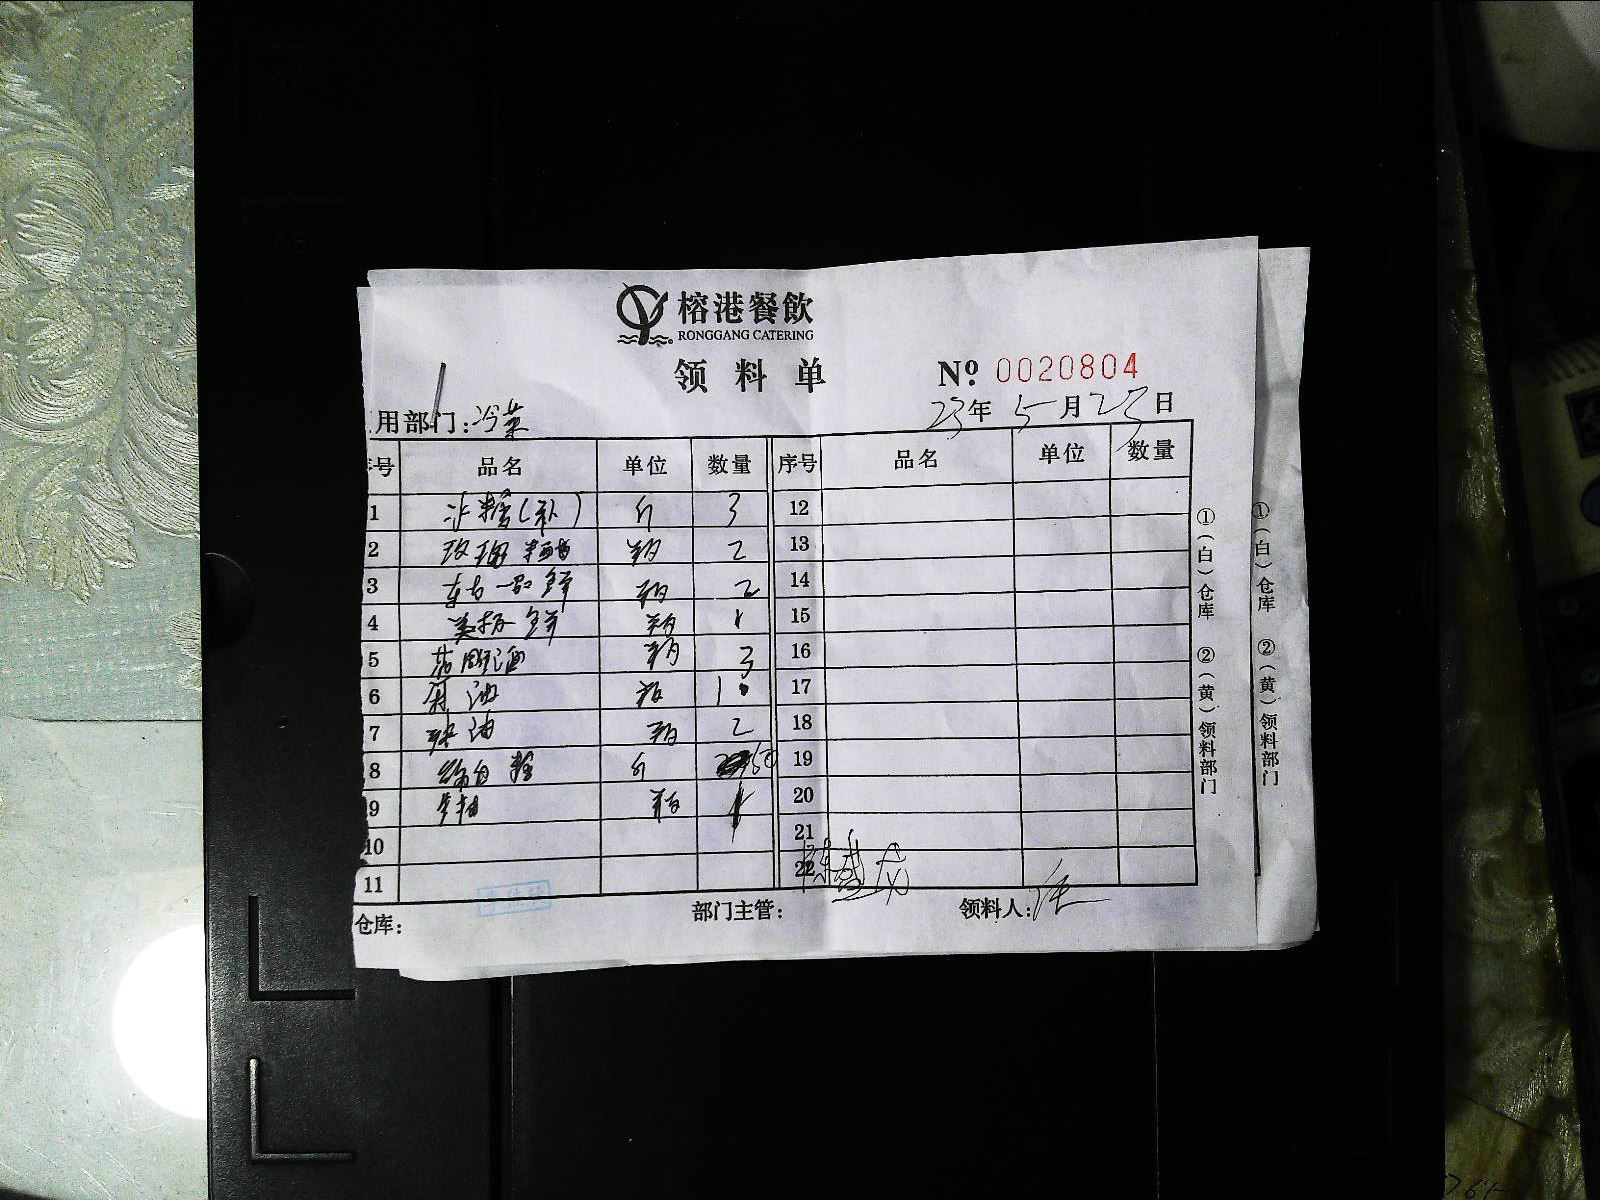 榕港餐飲
RONGGANG CATERING
领料单
Nº 0020804
用部门:冷菜
23年5月23日
序号 品名 单位 数量 序号 品名 单位 数量
1 冰糖(补) 斤 3 12
2 玫瑰 瓶 2 13
3 东古一品鲜 瓶 2 14
4 美极鲜 瓶 1 15
5 花雕酒 瓶 3 16
6 麻油 瓶 1 17
7 油 瓶 2 18
8 绵白糖 斤 50 19
9 瓶 1 20
10 21
11 22
仓库: 部门主管: 领料人:
①(白)仓库 ②(黄)领料部门
①(白)仓库 ②(黄)领料部门